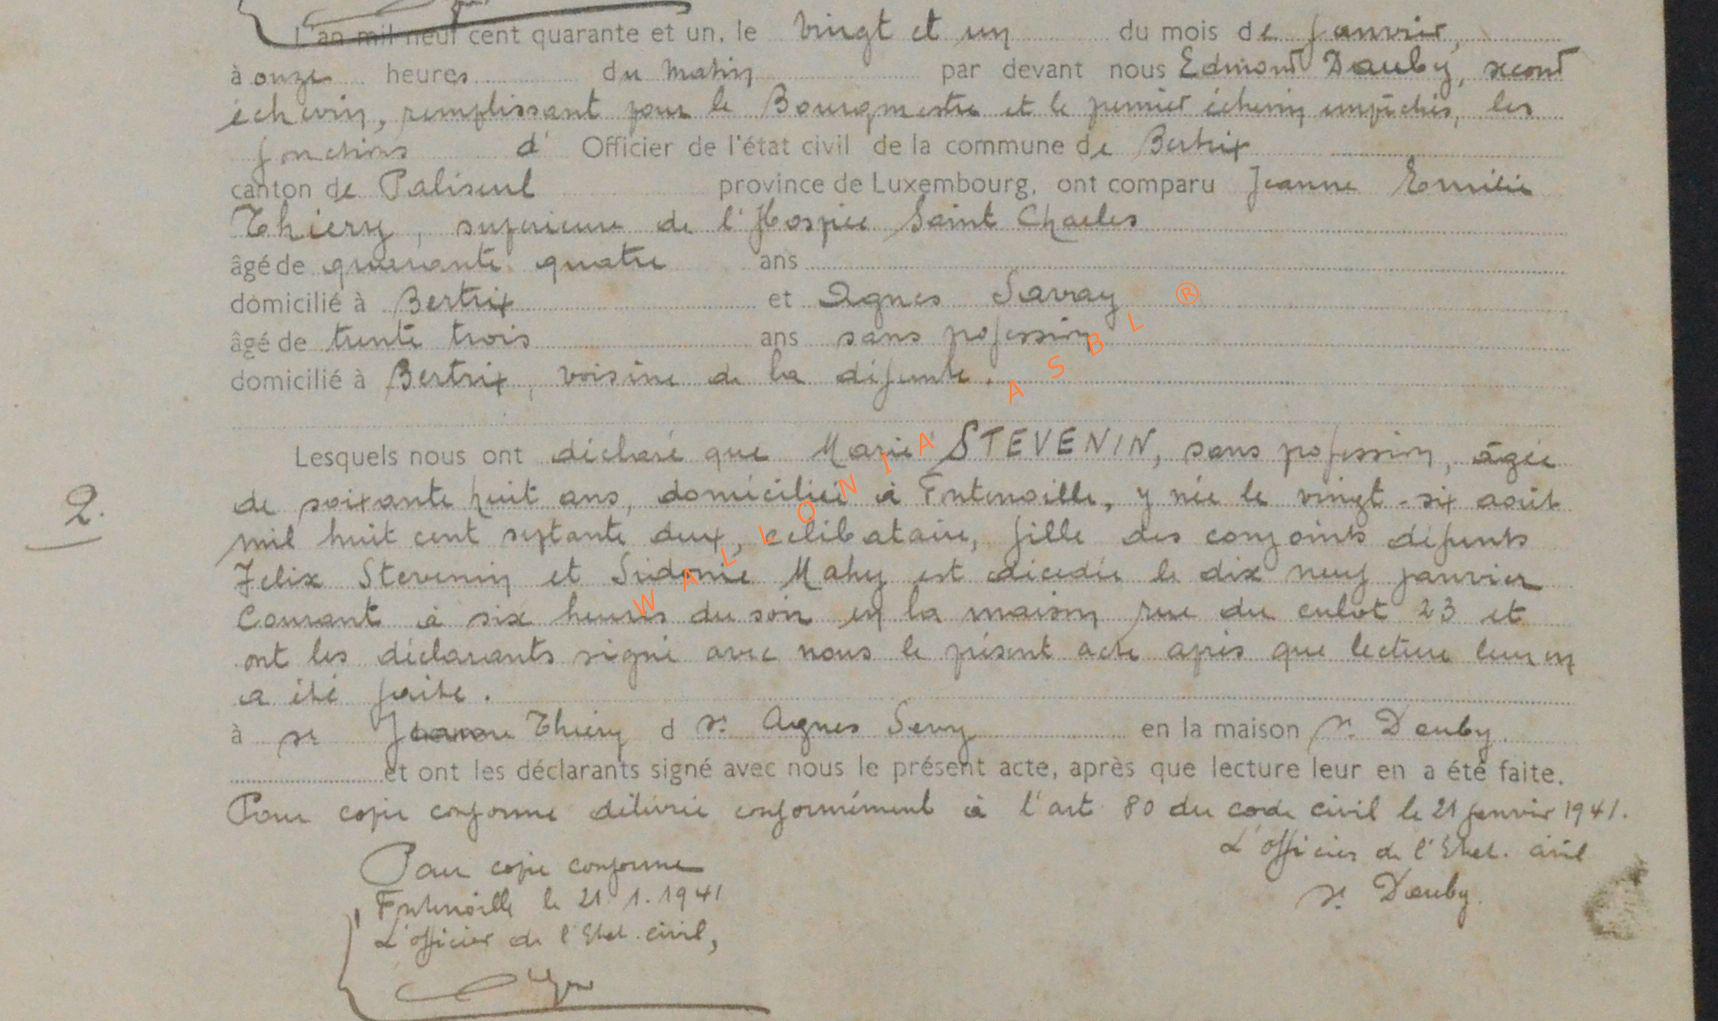 L'an mil neuf cent quarante et un, le vingt et un du mois de janvier,
à onze heures du matin par devant nous Edmond Dauby, second
échevin, remplissant pour le Bourgmestre et le premier échevin empêchés, les
fonctions d' Officier de l'état civil de la commune de Bertrix
canton de Paliseul province de Luxembourg, ont comparu Jeanne Emilie
Thiery, superieure de l'Hospice Saint Charles
âgé de quarante quatre ans
domicilié à Bertrix et Agnes Savay ®
âgé de trente trois ans sans profession
domicilié à Bertrix, voisine de la défunte.
WALLONIA ASBL
Lesquels nous ont déclaré que Marie STEVENIN, sans profession, âgée
2. de soixante huit ans, domiciliée à Fontenoille, y née le vingt-six août
mil huit cent septante deux, celibataire, fille des conjoints défunts
Felix Stevenin et Sidonie Mahy est décédée le dix neuf janvier
courant à six heures du soir en la maison rue du culot 23 et
ont les déclarants signé avec nous le présent acte après que lecture leur en
a été faite.
à sr Jeanne Thiery d sr. Agnes en la maison sr. Dauby.
et ont les déclarants signé avec nous le présent acte, après que lecture leur en a été faite.
Pour copie conforme délivrée conformément à l'art 80 du code civil le 21 janvier 1941.
L'officier de l'Etat. civil
sr. Dauby.
Pour copie conforme
Fontenoille le 21.1.1941
L'officier de l'Etat. civil,